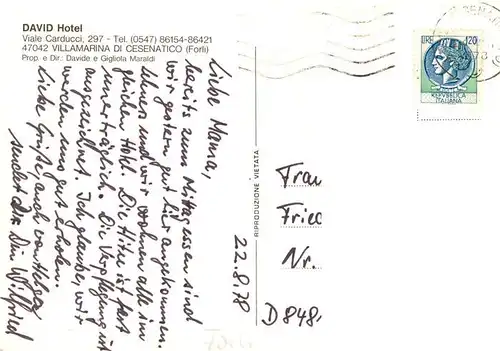 DAVID Hotel
Viale Carducci, 297 - Tel. (0547) 86154-86421
47042 VILLAMARINA DI CESENATICO (Forlì)
Prop. e Dir.: Davide e Gigliola Maraldi
Liebe Mama,
bereits zum Mittagessen sind
wir gestern gut hier angekommen.
und wir wohnen alle im
gleichen Hotel. Die Hitze ist fast
unerträglich. Die Verpflegung ist
ausgezeichnet. Ich glaube, wir
werden uns gut erholen.
Liebe Grüße, auch von Helga
sendet Dir Dein Wilfried
22.8.78
RIPRODUZIONE VIETATA
LIRE 120
REPVBBLICA
ITALIANA
Frau
Fried
Nr.
D 848